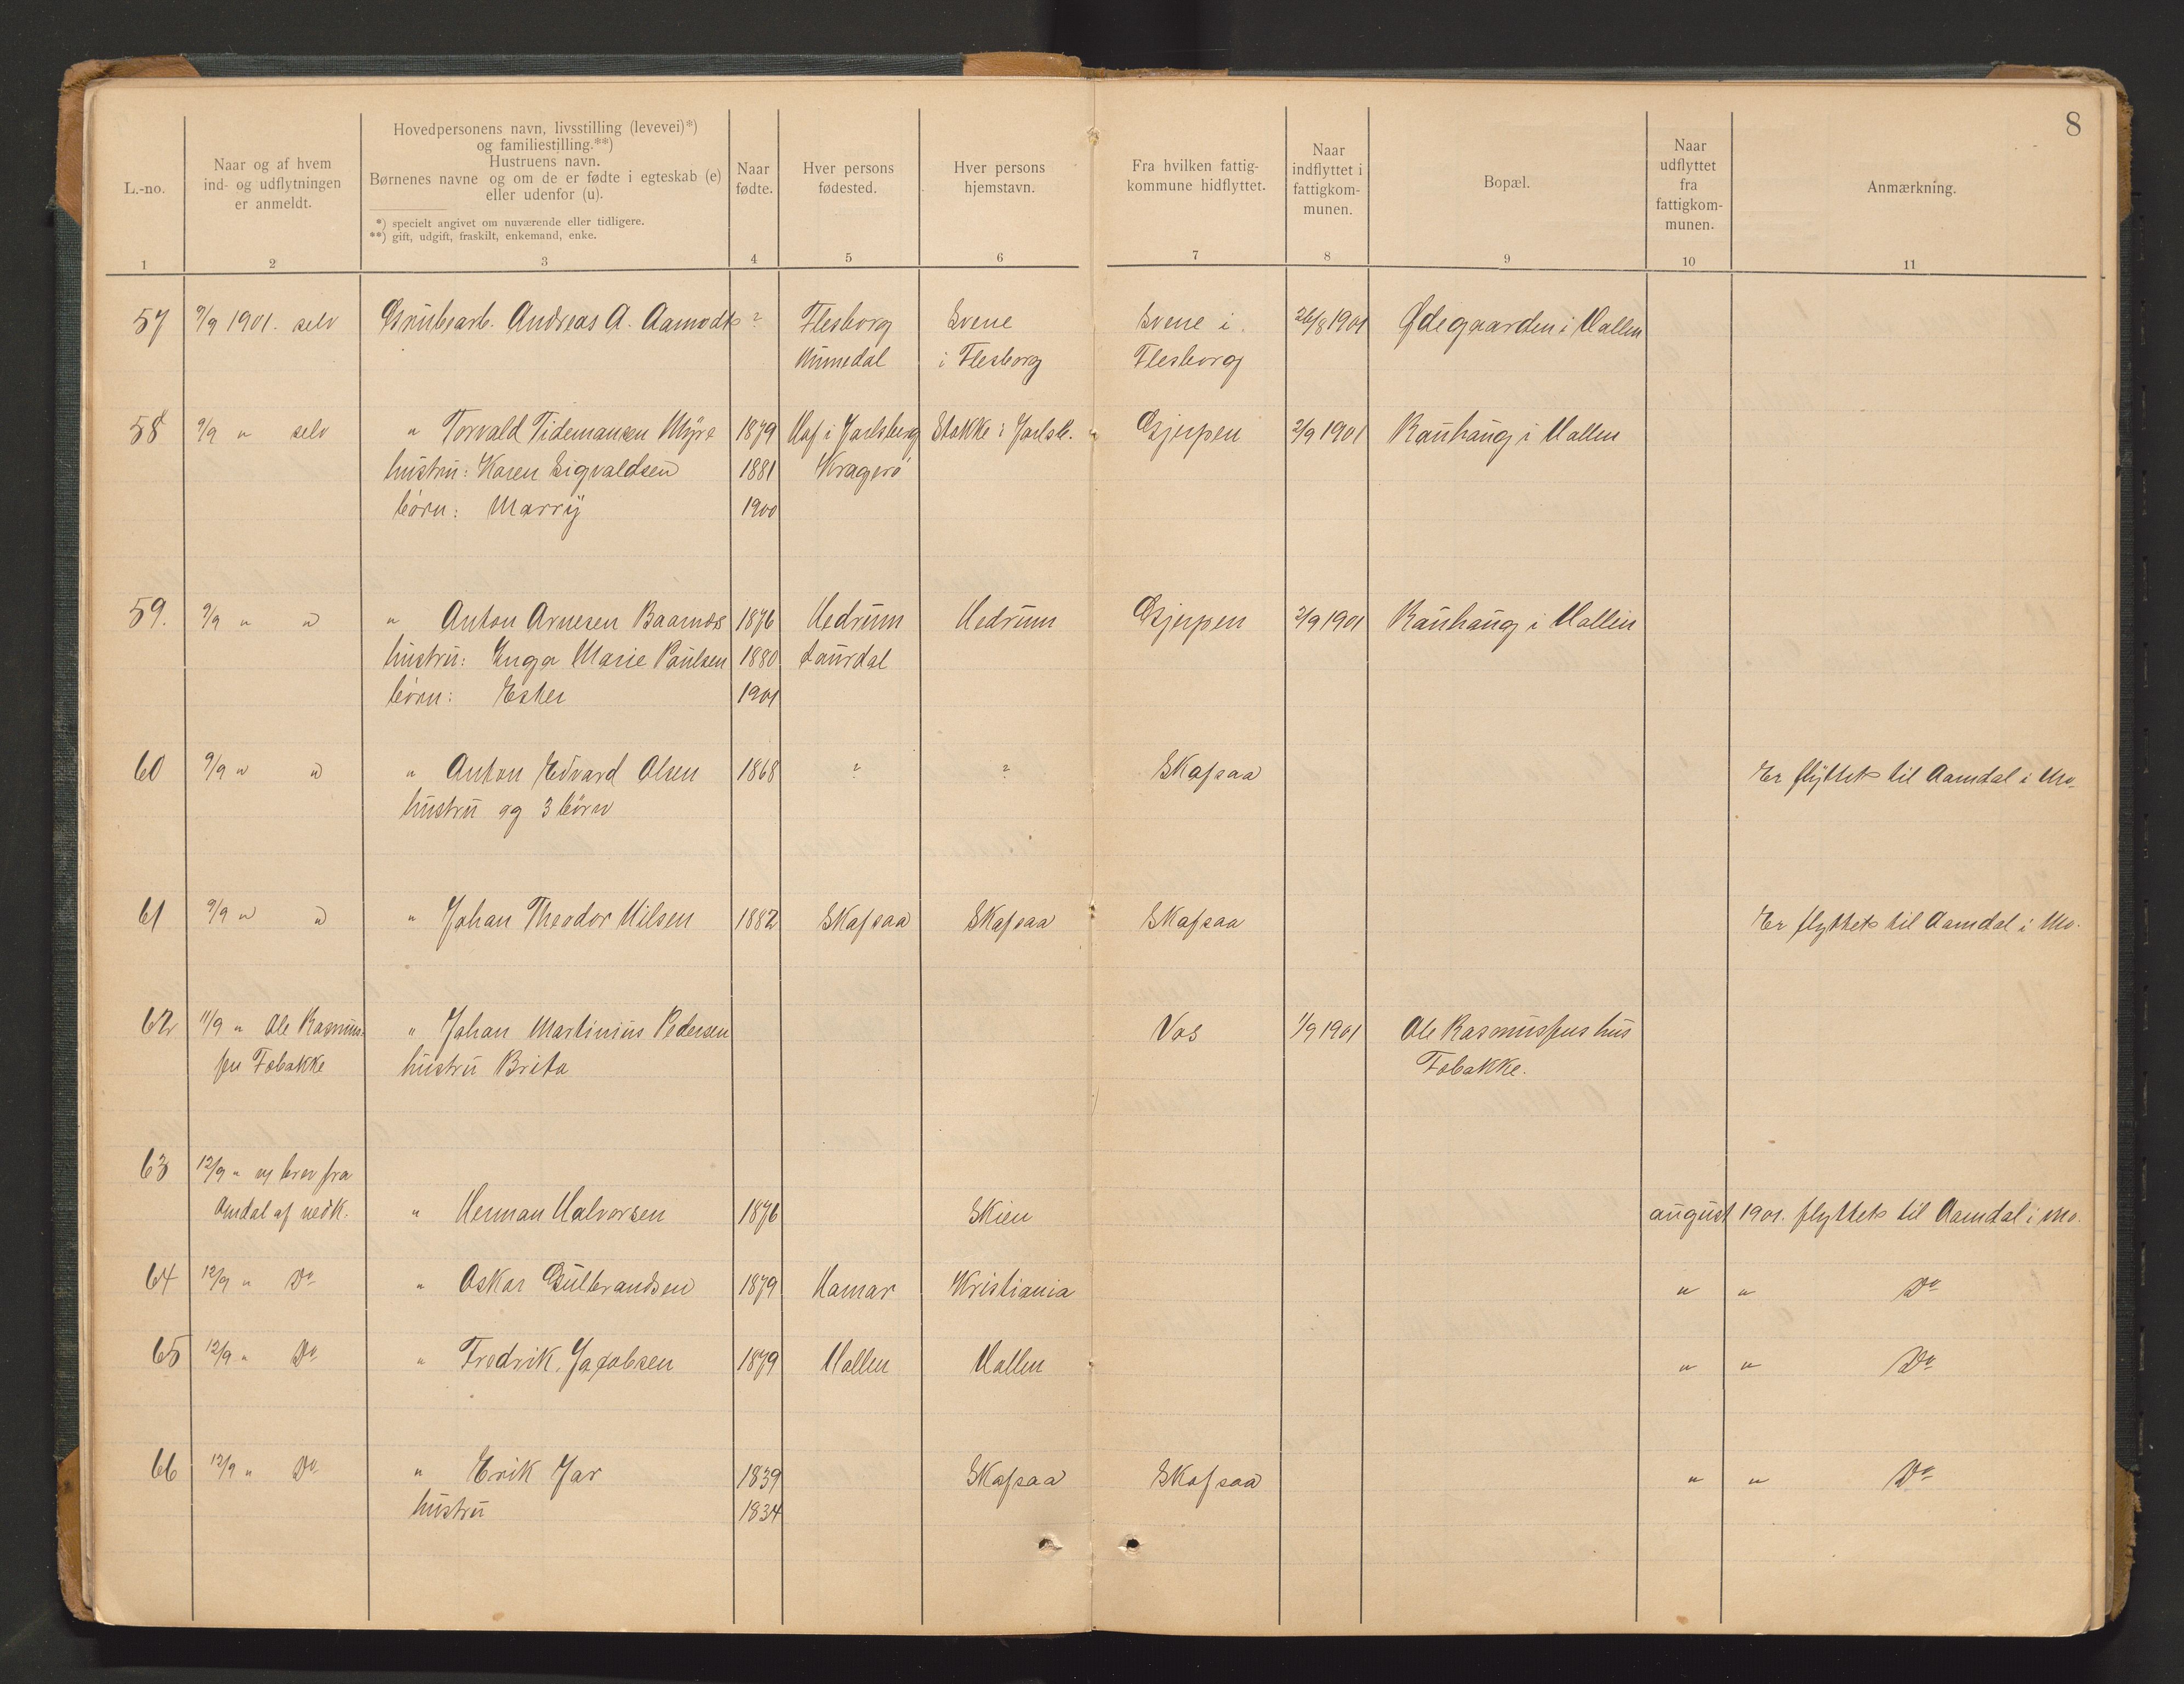 8
L.-no.
Naar og af hvem
ind- og udflytningen
er anmeldt.
Hovedpersonens navn, livsstilling (levevei)*)
og familiestilling.**)
Hustruens navn.
Børnenes navne og om de er fødte i egteskab (e)
eller udenfor (u).
*) specielt angivet om nuværende eller tidligere.
**) gift, udgift, fraskilt, enkemand, enke.
Naar
fødte.
Hver persons
fødested.
Hver persons
hjemstavn.
Fra hvilken fattig-
kommune hidflyttet.
Naar
indflyttet i
fattigkom-
munen.
Bopæl.
Naar
udflyttet
fra
fattigkom-
munen.
Anmærkning.
1 2 3 4 5 6 7 8 9 10 11
57 9/9 1901. selv Grubearb. Andreas A. Aamodt ? Flesborg Svene Svene i 26/8 1901 Ødegaarden i Hallen
Numedal i Flesborg Flesborg
58 9/9 " selv " Torvald Tidemansen Myre 1879 Haf i Jarlsberg Stokke i Jarlsb. Gjerpen 2/9 1901 Rauhaug i Hallen
hustru: Karen Sigvaldsen 1881 Kragerø
børn: Marry 1900
59. 9/9 " " " Anton Arnesen Baarnæs 1876 Hedrum Hedrum Gjerpen 2/9 1901 Rauhaug i Hallen
hustru: Inga Marie Paulsen 1880 Laurdal
børn: Ester 1901
60 9/9 " " " Anton Edvard Olsen 1868 ? ? Skafsaa Er flyttet til Aamdal i Mo.
hustru og 3 børn
61 9/9 " " " Johan Theodor Nilsen 1882 Skafsaa Skafsaa Skafsaa Er flyttet til Aamdal i Mo.
62 11/9 " Ole Rasmus- " Johan Martinius Pedersen Vos 1/9 1901 Ole Rasmussens hus
sen Fobakke hustru Brita Fobakke.
63 12/9 " brev fra
Amdal af nedk. " Herman Halvorsen 1876 Skien august 1901. flyttet til Aamdal i Mo.
64 12/9 " Do " Oskar Gulbrandsen 1879 Hamar Kristiania " " Do
65 12/9 " Do " Fredrik Jacobsen 1879 Hallen Hallen " " Do
66 12/9 " Do " Erik Jar 1839 Skafsaa Skafsaa " " Do
hustru 1834